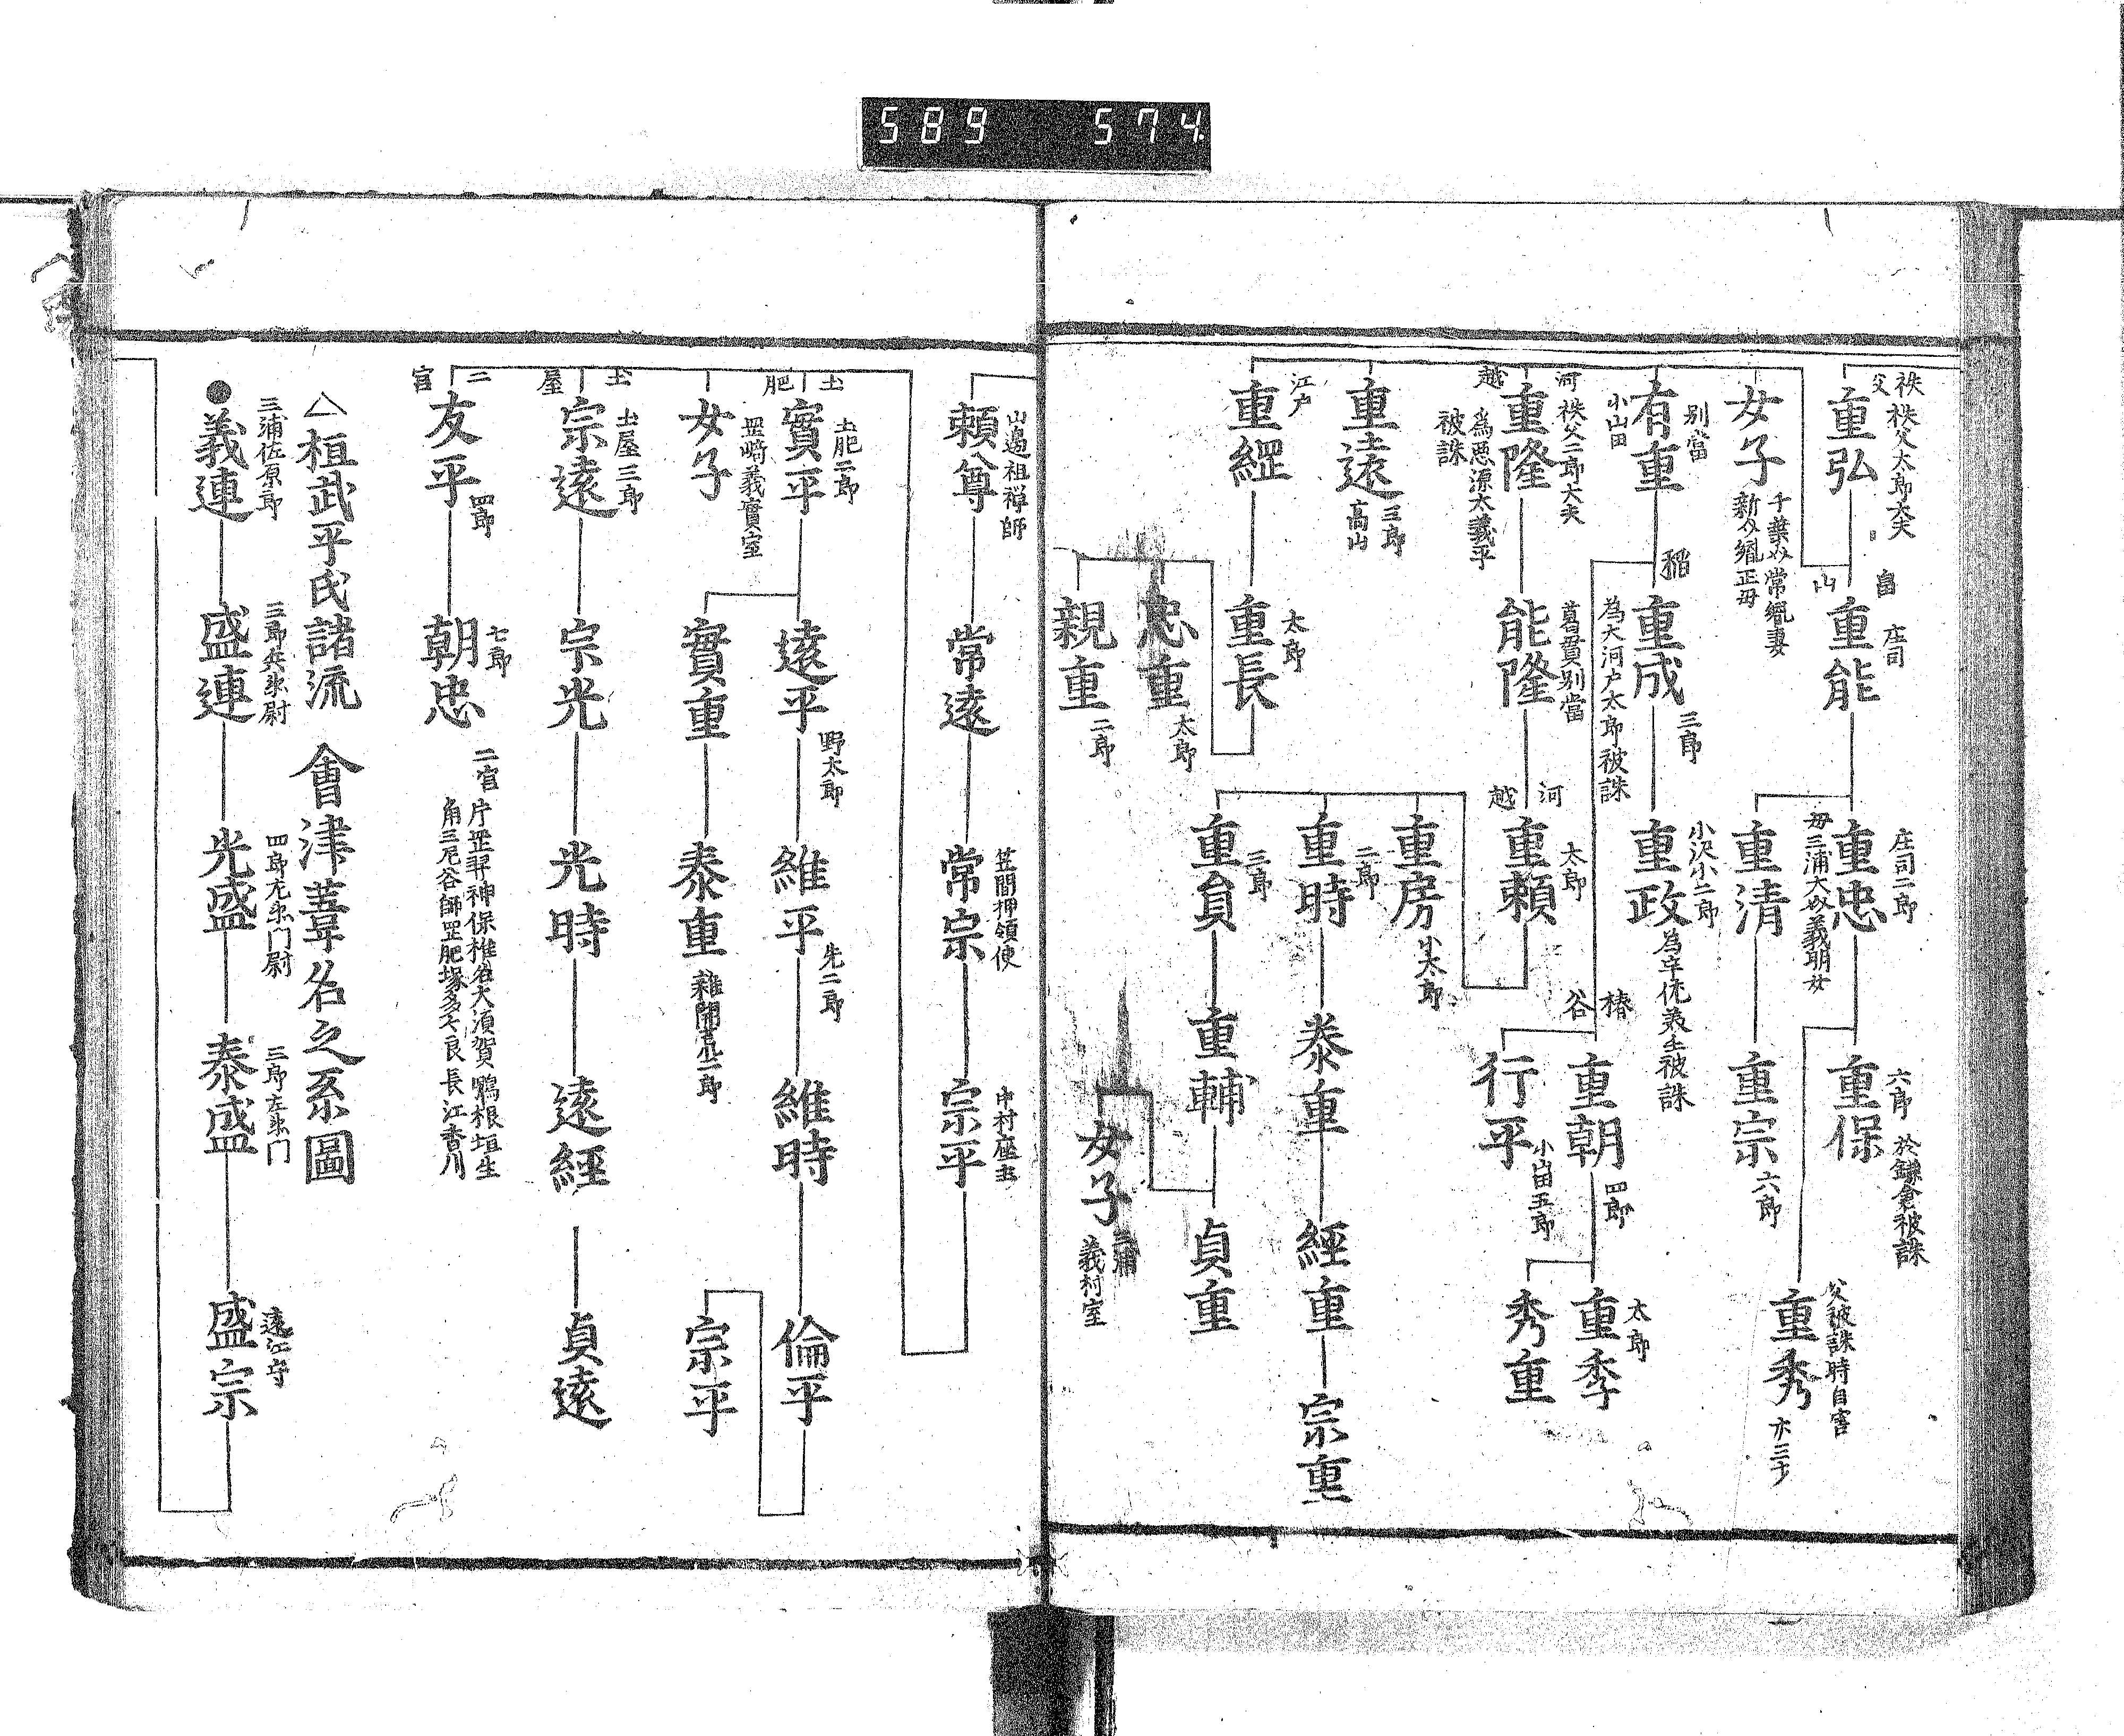 589 574
秩父
重弘
秩父太郎大夫
畠山
重能
庄司
重忠
庄司二郎
母三浦大介義明女
重保
六郎 於鎌倉被誅
重秀
父被誅時自害
重清
重宗 六郎
女子
千葉介常胤妻
新介胤正母
有重
別當
小山田
稲
重成 三郎
為大河戸太郎被誅
重政
小沢小二郎
椿谷
重朝 四郎
重季
太郎
秀重
行平
小山田五郎
河越
重隆
秩父二郎大夫
為悪源太義平
被誅
能隆
葛貫別當
河越
重頼
太郎
重房
小太郎
重時
二郎
泰重
經重
宗重
重員
三郎
重輔
貞重
女子
三浦
義村室
重遠
三郎
高山
江戸
重經
重長
太郎
忠重
太郎
親重
二郎
頼尊
山邊祖禅師
常遠
常宗
笠間押領使
宗平
中村座主
土肥
實平
土肥二郎
遠平
野太郎
維平
先二郎
維時
倫平
宗平
實重
泰重
女子
罡﨑義實室
土屋
宗遠
土屋三郎
宗光
光時
遠經
貞遠
二宮
友平
四郎
朝忠
七郎
二宮
△桓武平氏諸流 會津葦名之系圖
●義連
三浦佐原十郎
盛連
三郎兵衛尉
光盛
四郎左衛門尉
泰盛
三郎左衛門
盛宗
遠江守